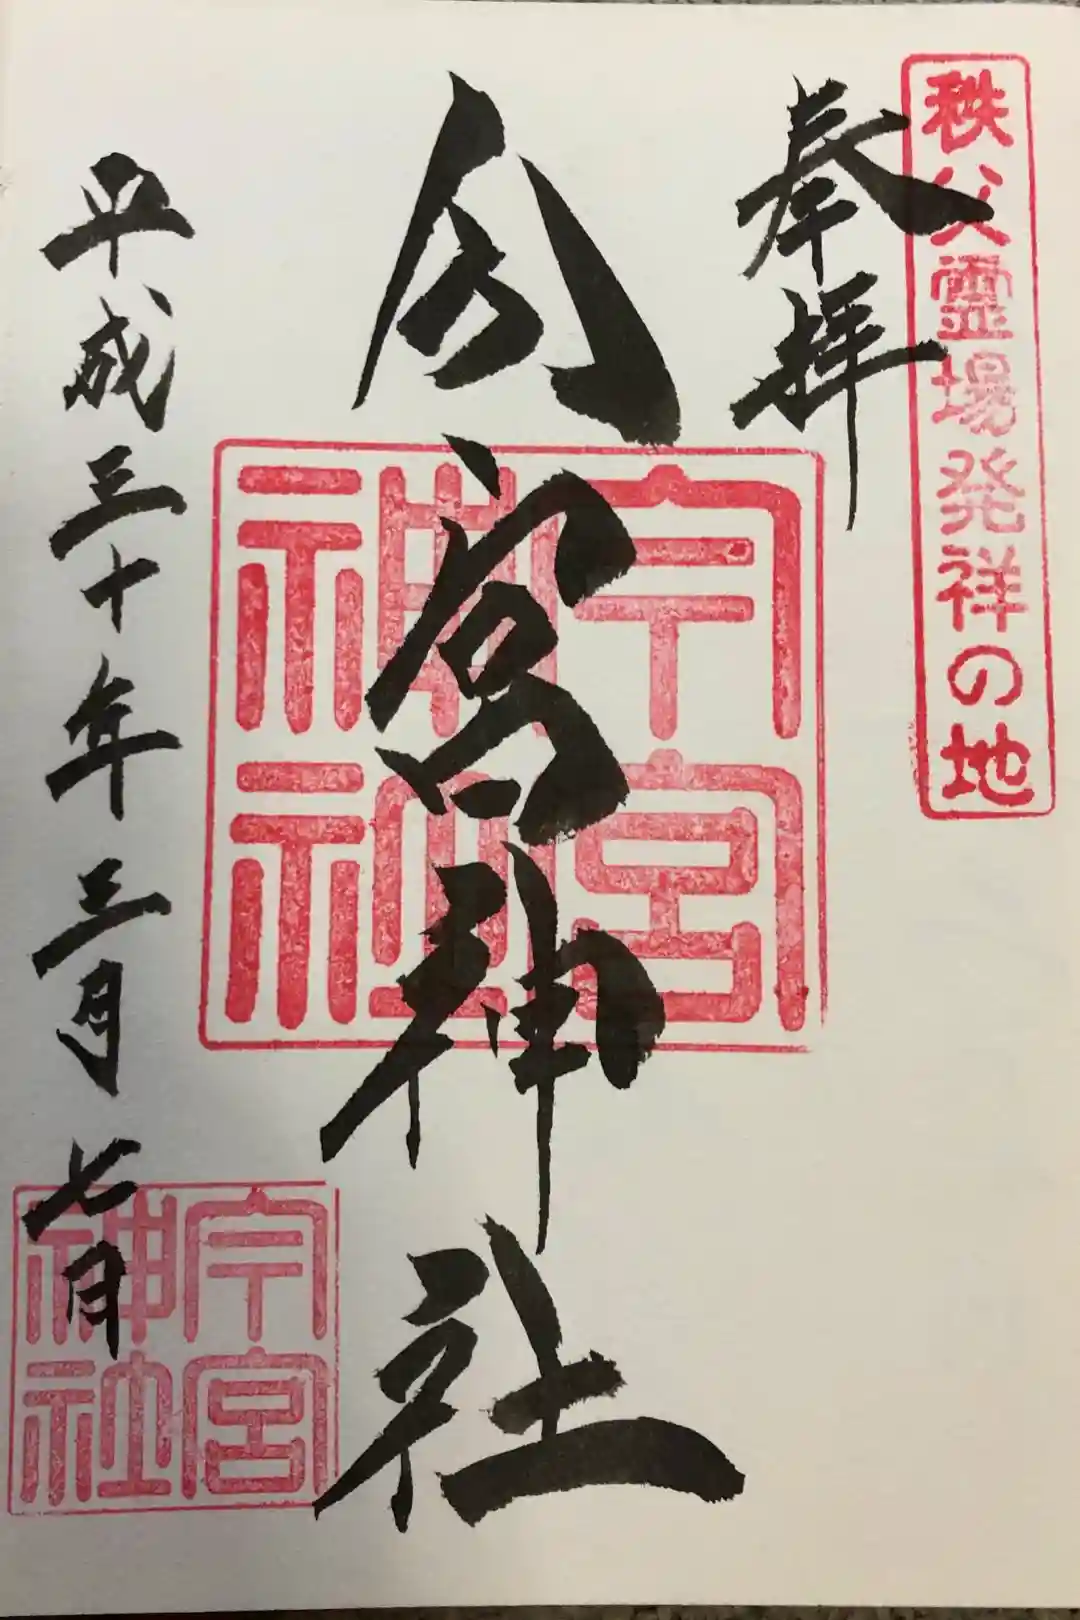 秩父霊場発祥の地
奉拝
今宮神社
今宮神社
平成三十年三月七日
今宮神社